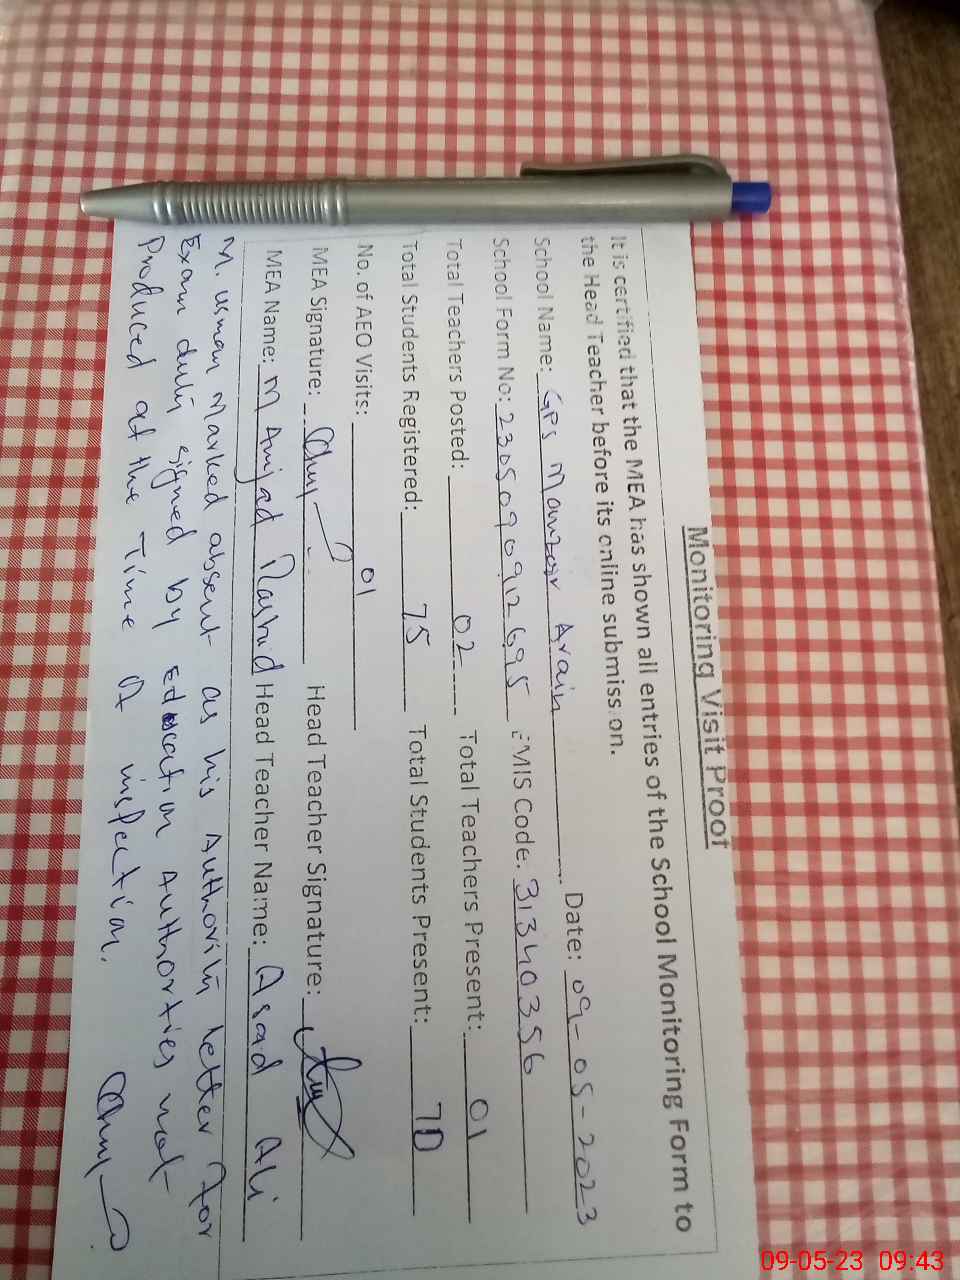 Monitoring Visit Proof
It is certified that the MEA has shown all entries of the School Monitoring Form to
the Head Teacher before its online submission.
School Name: GPS Manzoor Arain Date: 09-05-2023
School Form No: 230509 0912695 EMIS Code. 31340356
Total Teachers Posted: 02 Total Teachers Present: 01
Total Students Registered: 75 Total Students Present: 70
No. of AEO Visits: 01
MEA Signature: Head Teacher Signature:
MEA Name: M Amjad Rashid Head Teacher Name: Asad Ali
M. usman Marked absent as his Authority letter for
Exam duly signed by Education Authorties not
Produced at the Time of inspection.
09-05-23 09:43